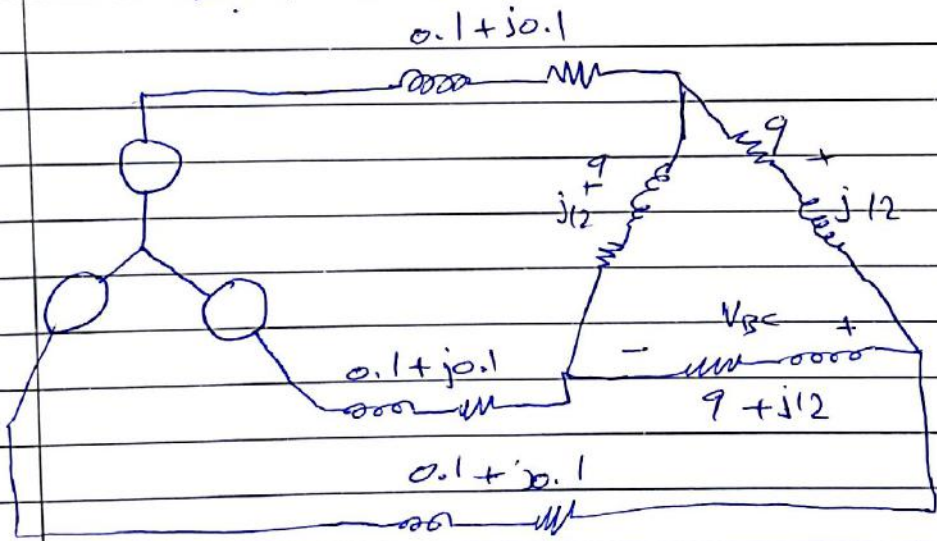 0.1 + j0.1
9
+
j12
9
+
j12
V_BC
- +
0.1 + j0.1
9 + j12
0.1 + j0.1